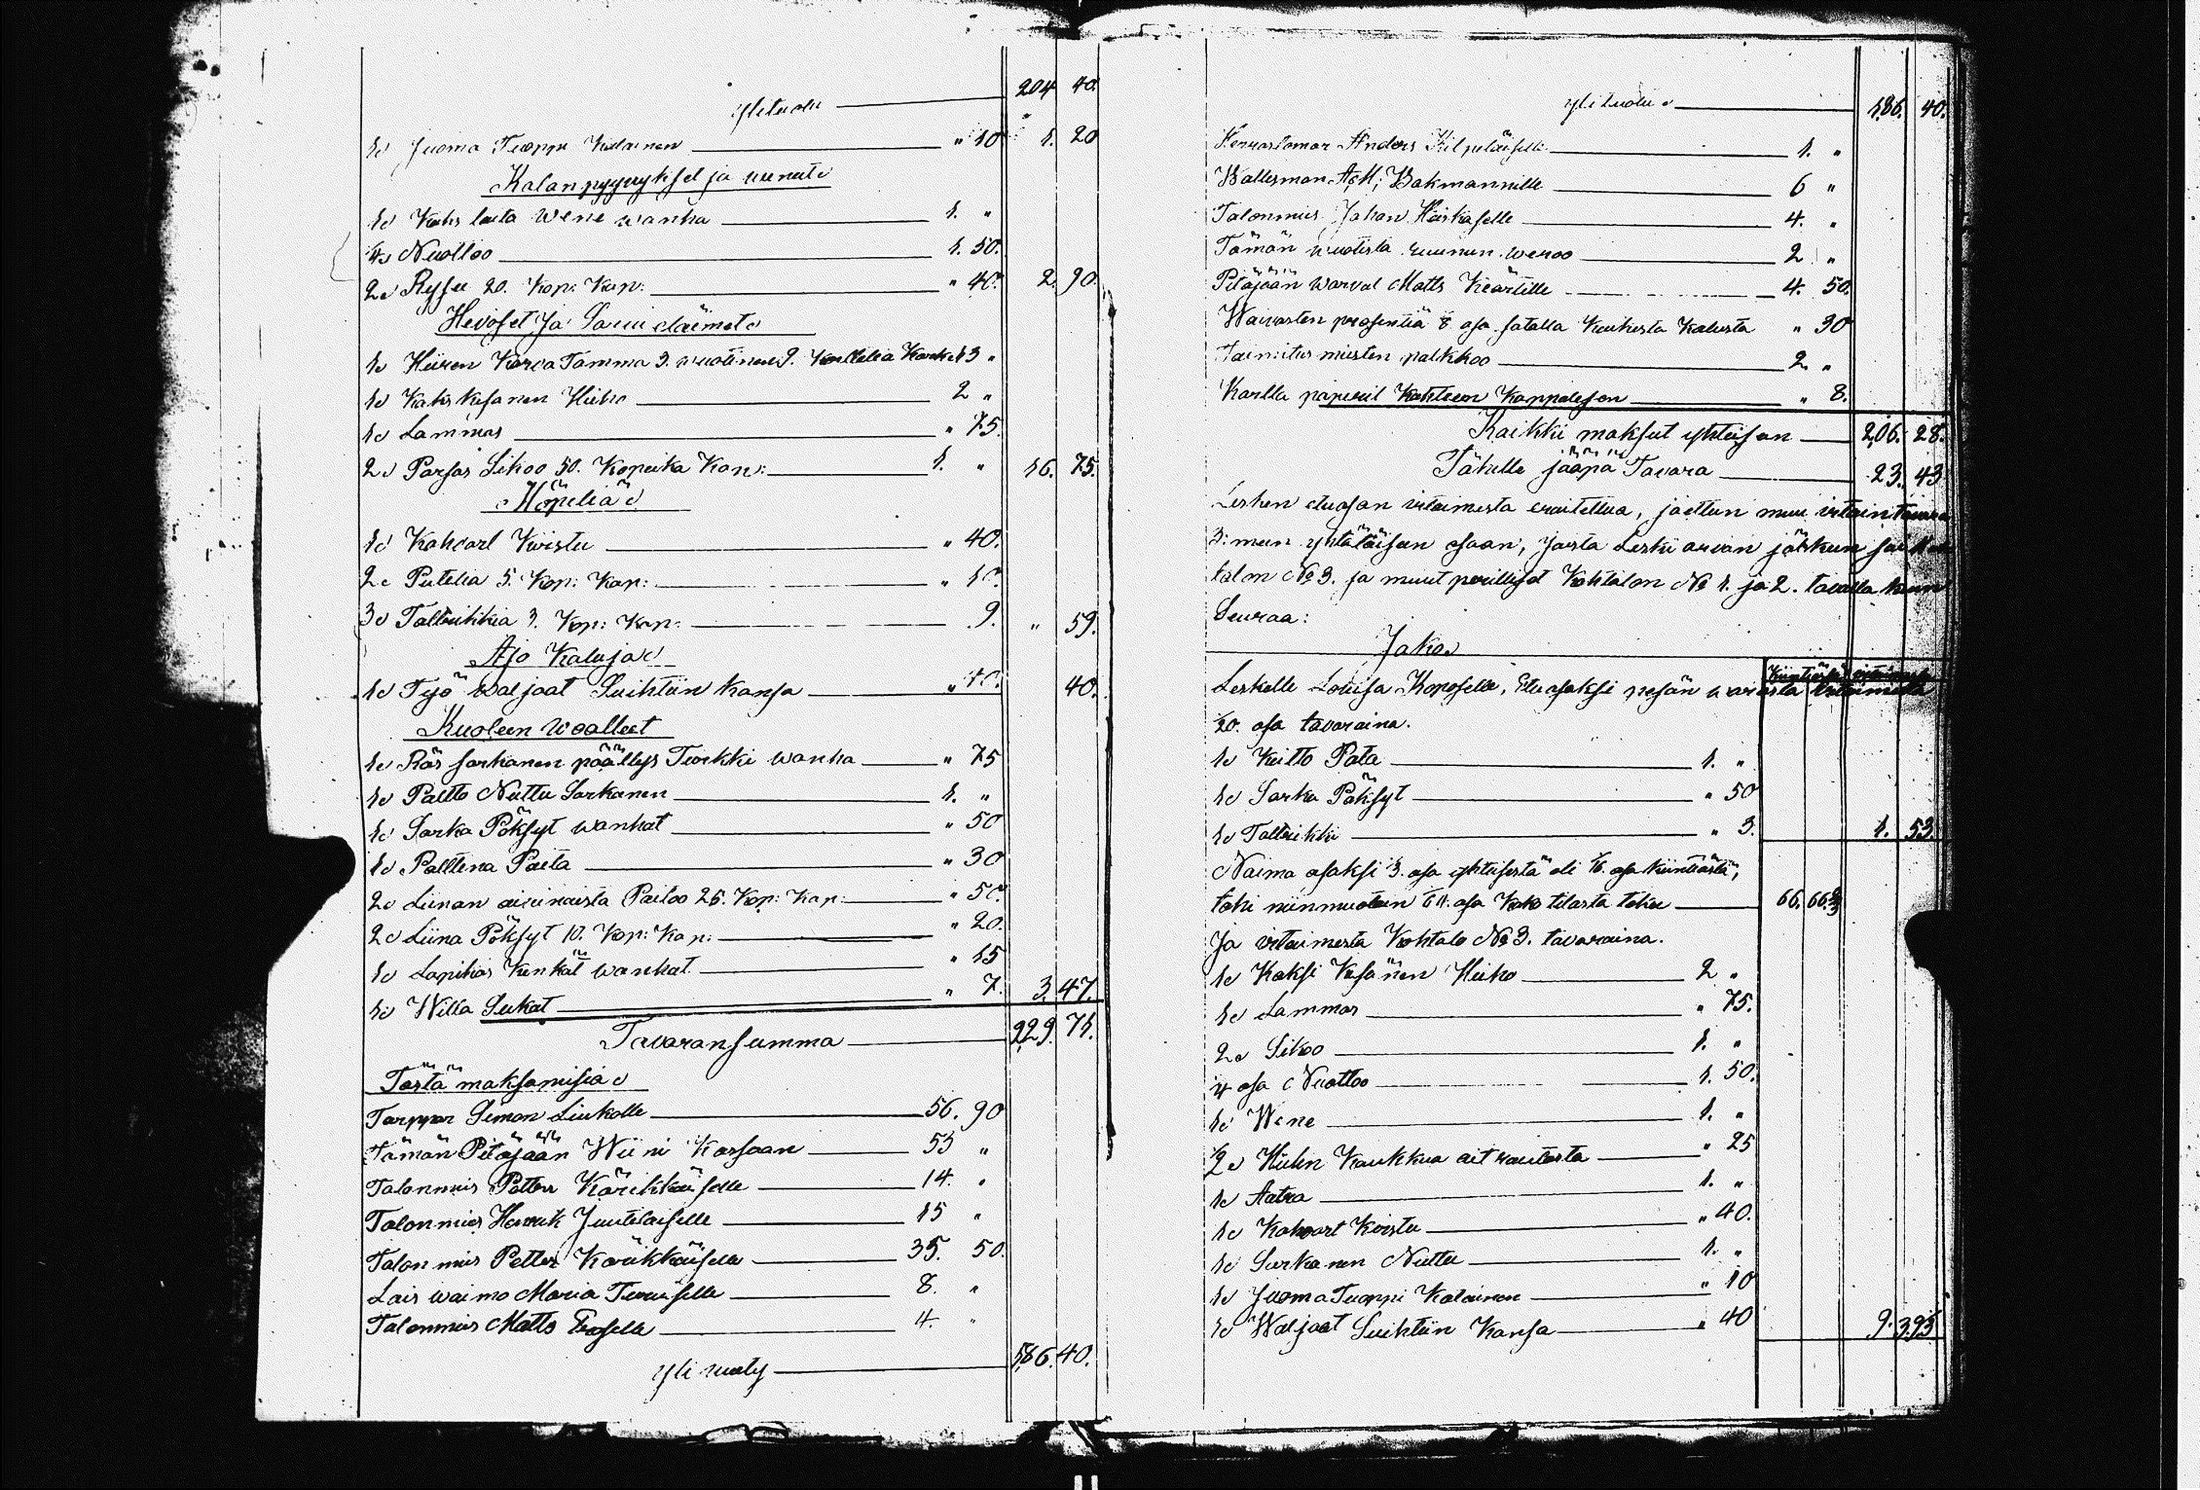 Ylituodu 204 40.
1 Juoma Tuoppi Kalainen " 10 1. 20
Kalan pyyvykset ja veneet
1 Kaks laita Wene wanha 1. "
¼ Nuottoo 1. 50.
2 Rysee 20. Kop: Kap: " 40. 2. 90.
Hevoset Ja Sarvi elaimet
1 Hiiren Karva Tamma 9. wuotinen 13 "
1 Kaks kesanen Hieho 2 "
1 Lammas " 75.
2 Parsas Sikoo 50. Kopeika Kap: 1. " 16. 75.
Höpeliä
1 Kahvart Kirstu " 40.
2 Putelia 5. Kop: Kap: " 10.
3 Talleikkia 3. Kop: Kap: 9. " 59.
Ajo Kaluja
1 Työ waljaat Suihtiin kansa " 40. 40.
Kuoleen Waalleet
1 Räs sarkanen päällys Turkki wanha " 75
1 Paltto Nuttu Sarkanen 1. "
1 Sarka Pöksyt wanhat " 50
1 Palttina Paita " 30
2 Liinan aivinaista Paitoo 25. Kop: Kap: " 50.
2 Liina Pöksyt 10. Kop: Kap: " 20.
1 Lapikas Kenkät wanhat " 15
1 Willa Sukat " 7. 3. 47.
Tavaran summa 229. 71.
Tästä maksamisia
Torppar Simon Liukolle 56. 90
Tämän Pitäjään Wiini Kassaan 53 "
Talonmies Petter Kärikkäiselle 14. "
Talonmies Henrik Juutilaiselle 15 "
Talonmies Petter Karikkäiselle 35. 50.
Lais waimo Maria Turuiselle 8. "
Talonmies Matts 4. "
Yli wiety 186. 40.
Ylituodu 186. 40.
Anders Kilpeläiselle 1. "
Wallesman Bakmannille 6 "
Talonmies Johan Heiskaselle 4. "
Tämän wuotista ruunun weroo 2 "
Pitäjään warval Matts Keärtille 4. 50.
Waivasten prosentiä ⅛ osa satalla Kaikesta Kalusta " 30
Toimitus miesten palkkoo 2 "
Karlla paperil Kahteen Kappalesen " 8.
Kaikkii maksut yhteisen 206. 28.
Tähelle jääpä Tavara 23. 43
Lesken etuosan irtaimesta eroitettua, jaettiin muu irtain tavara
3:meen yhtäläisen osaan, josta Leski arvan jälkeen sai
talon No 3. ja muut perilliset Kohtalon No 1. ja 2. tavalla kuin
Seuraa:
Jako
Leskelle Lovisa Koposelle, Etuosaksi pesän
1/20. osa tavaraina.
1 Keitto Pata 1. "
1 Sarka Pöksyt " 50
1 Talleikki " 3. 1. 53.
Naima osaksi ⅓. osa yhteisestä eli ⅙. osa kiinttästä,
toki niinmuotoin osa Koko tilasta tekee 66. 66⅔
Ja irtaimesta Kohtalo No 3. tavaraina.
1 Kaksi Kesänen Hieho 2 "
1 Lammas " 75.
2 Sikoo 1. "
¼ osa Nuottoo 1. 50.
1 Wene 1. "
½ Hiilen Kaukkua " 25
1 Aatra 1. "
1 Kahvart Kirstu " 40.
1 Sarkanen Nuttu 1. "
1 Juoma Tuoppi Kalainen " 10
1 Waljaat Suihtiin Kansa " 40 9. 393